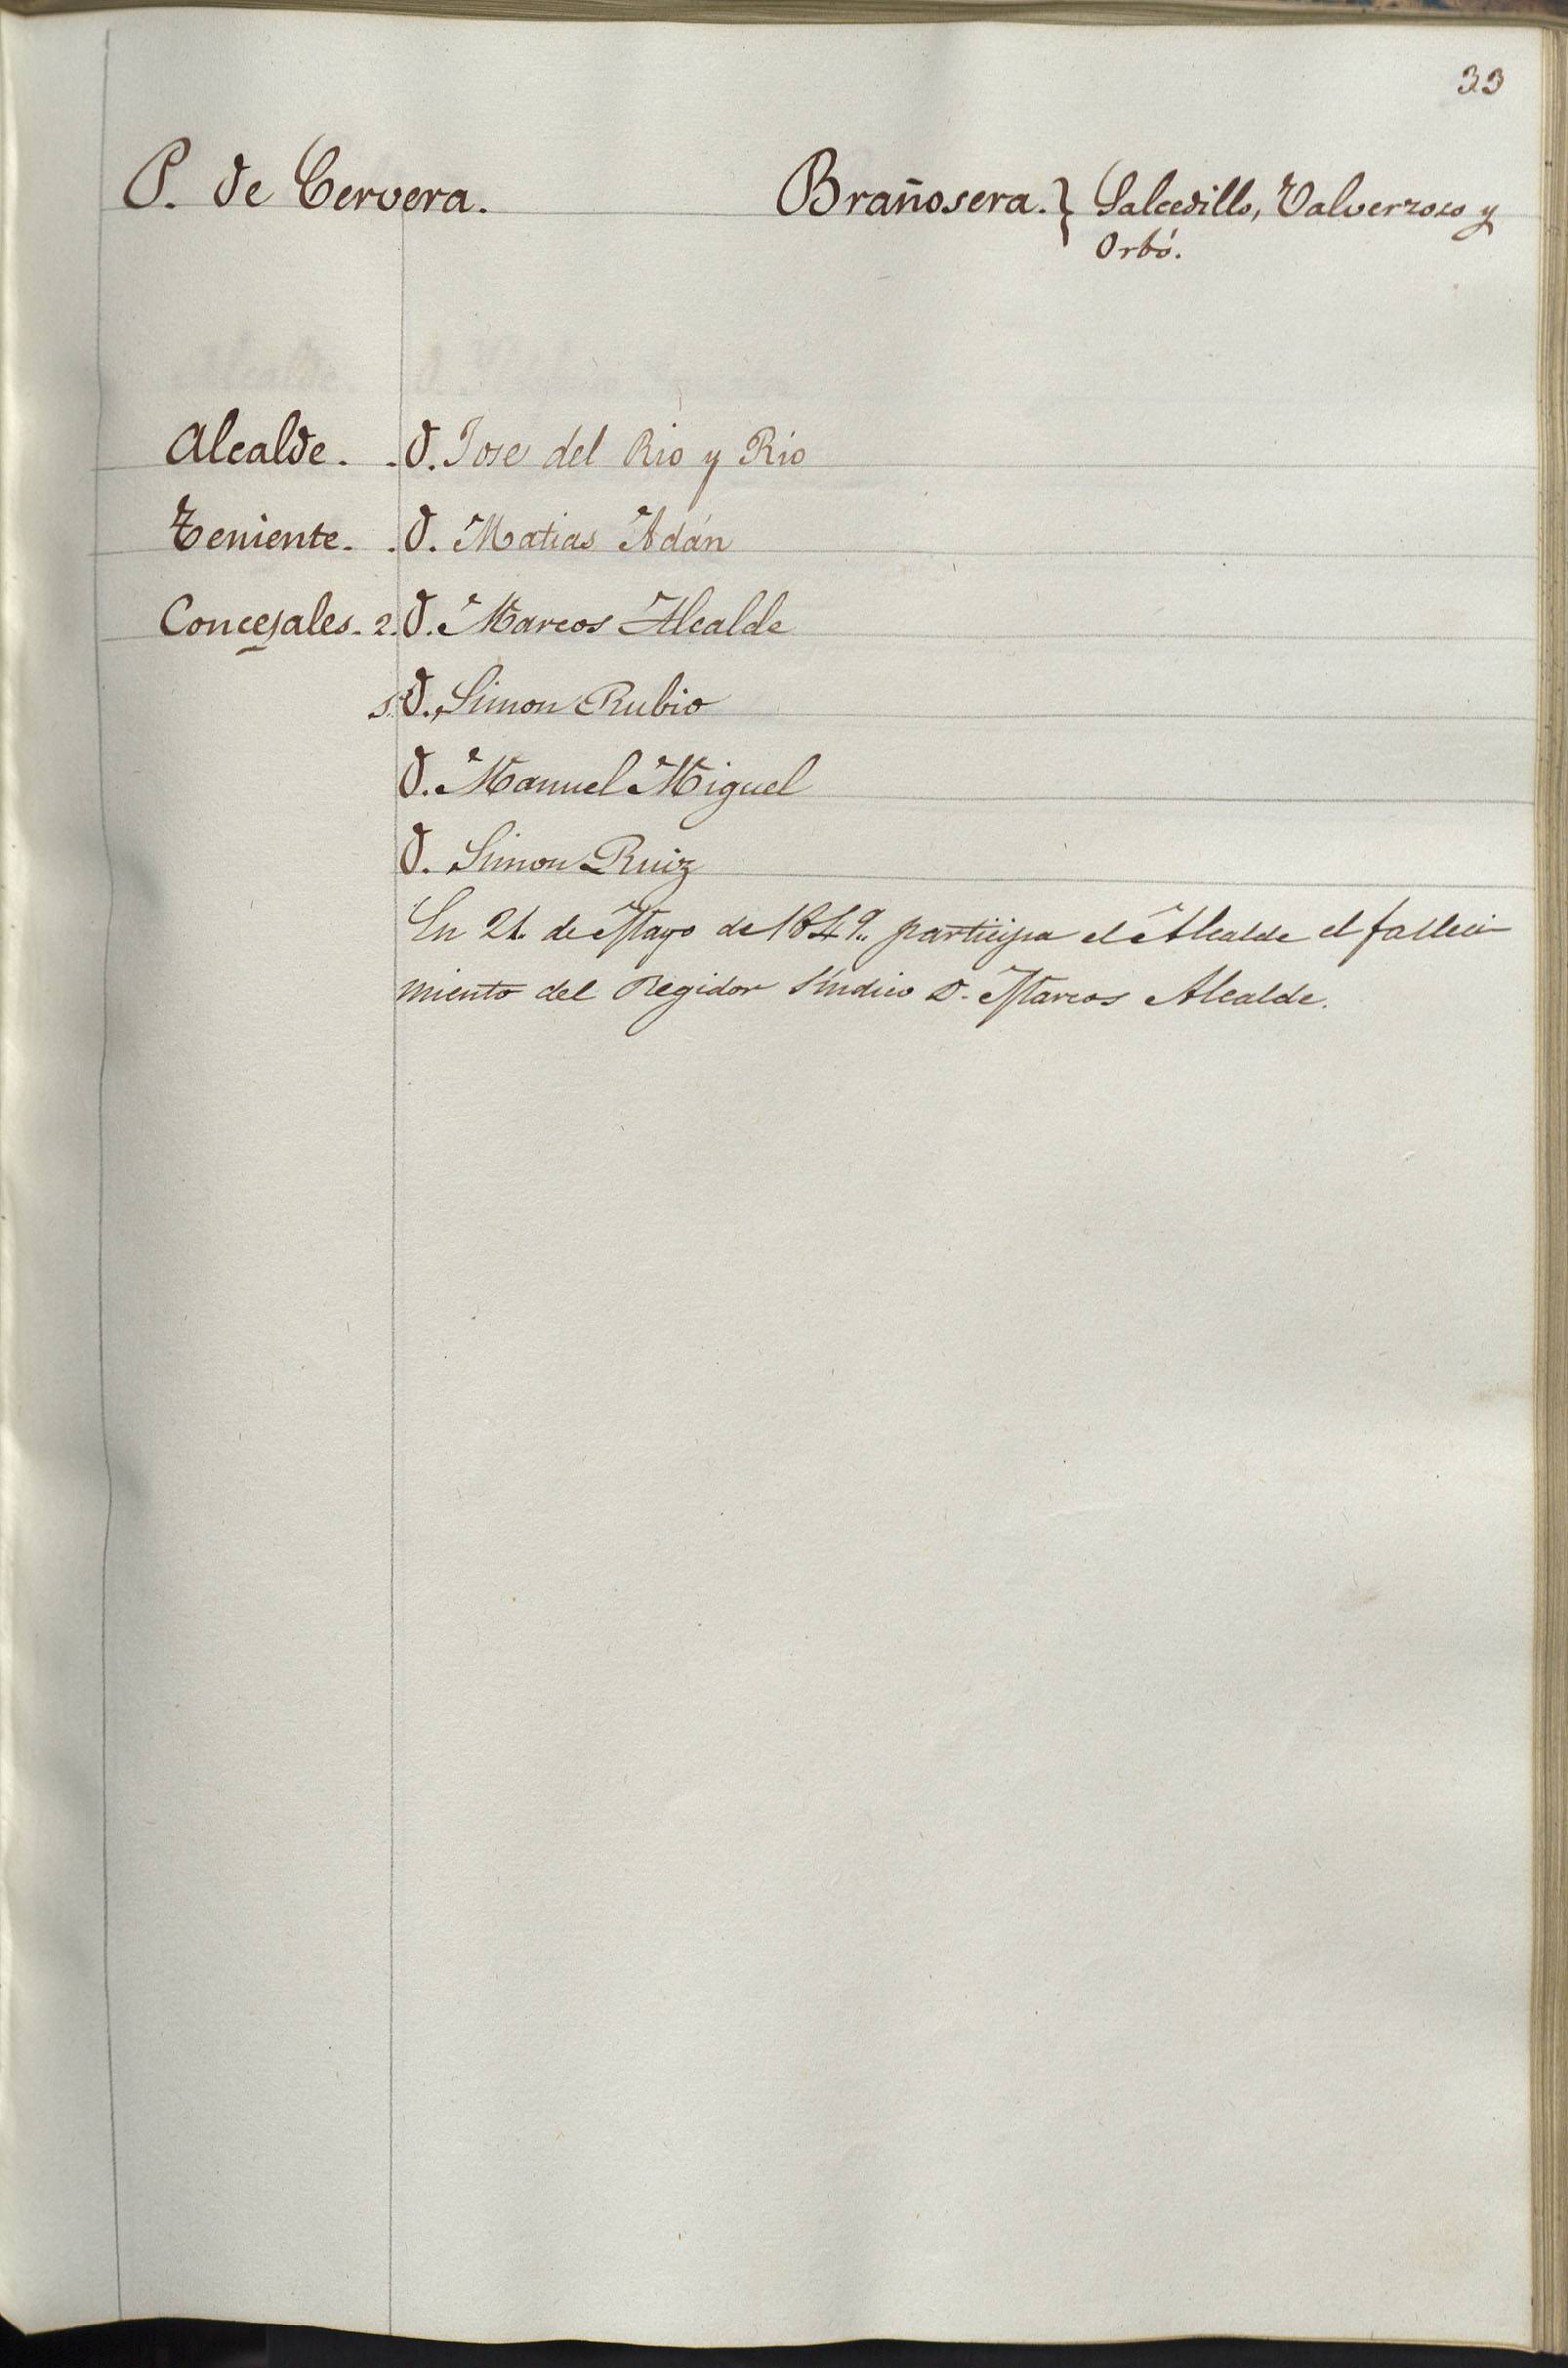 33
P. de Cervera. Brañosera. } Salcedillo, Valverzoso y
Orbó.
Alcalde. . D. Jose del Rio y Rio
Teniente. . D. Matias Adán
Concejales. 2. D. Marcos Alcalde
S. D. Simon Rubio
D. Manuel Miguel
D. Simon Ruiz
En 21. de Mayo de 1849.. participa el Alcalde el falleci-
miento del Regidor Sindico D. Marcos Alcalde.